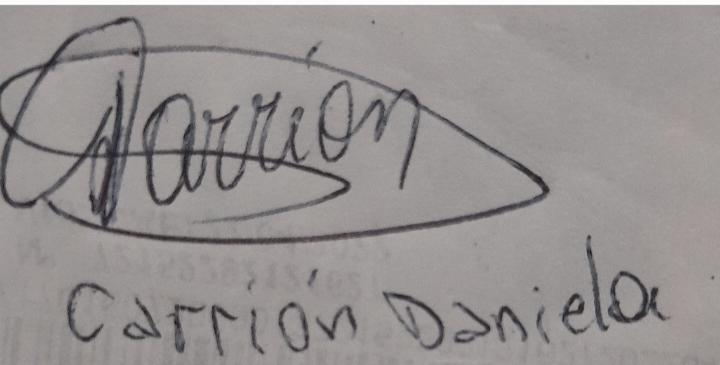 Carrión
Carrión Daniela